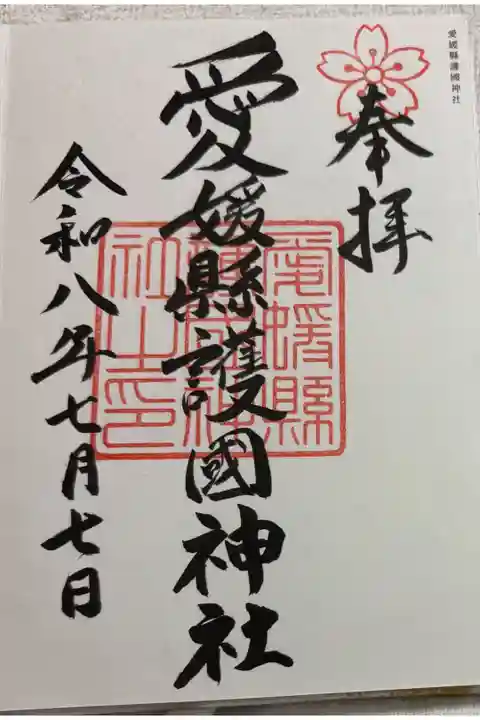 愛媛縣護國神社
奉拝
愛媛縣護國神社
愛媛縣
護國神
社之印
令和八年七月七日